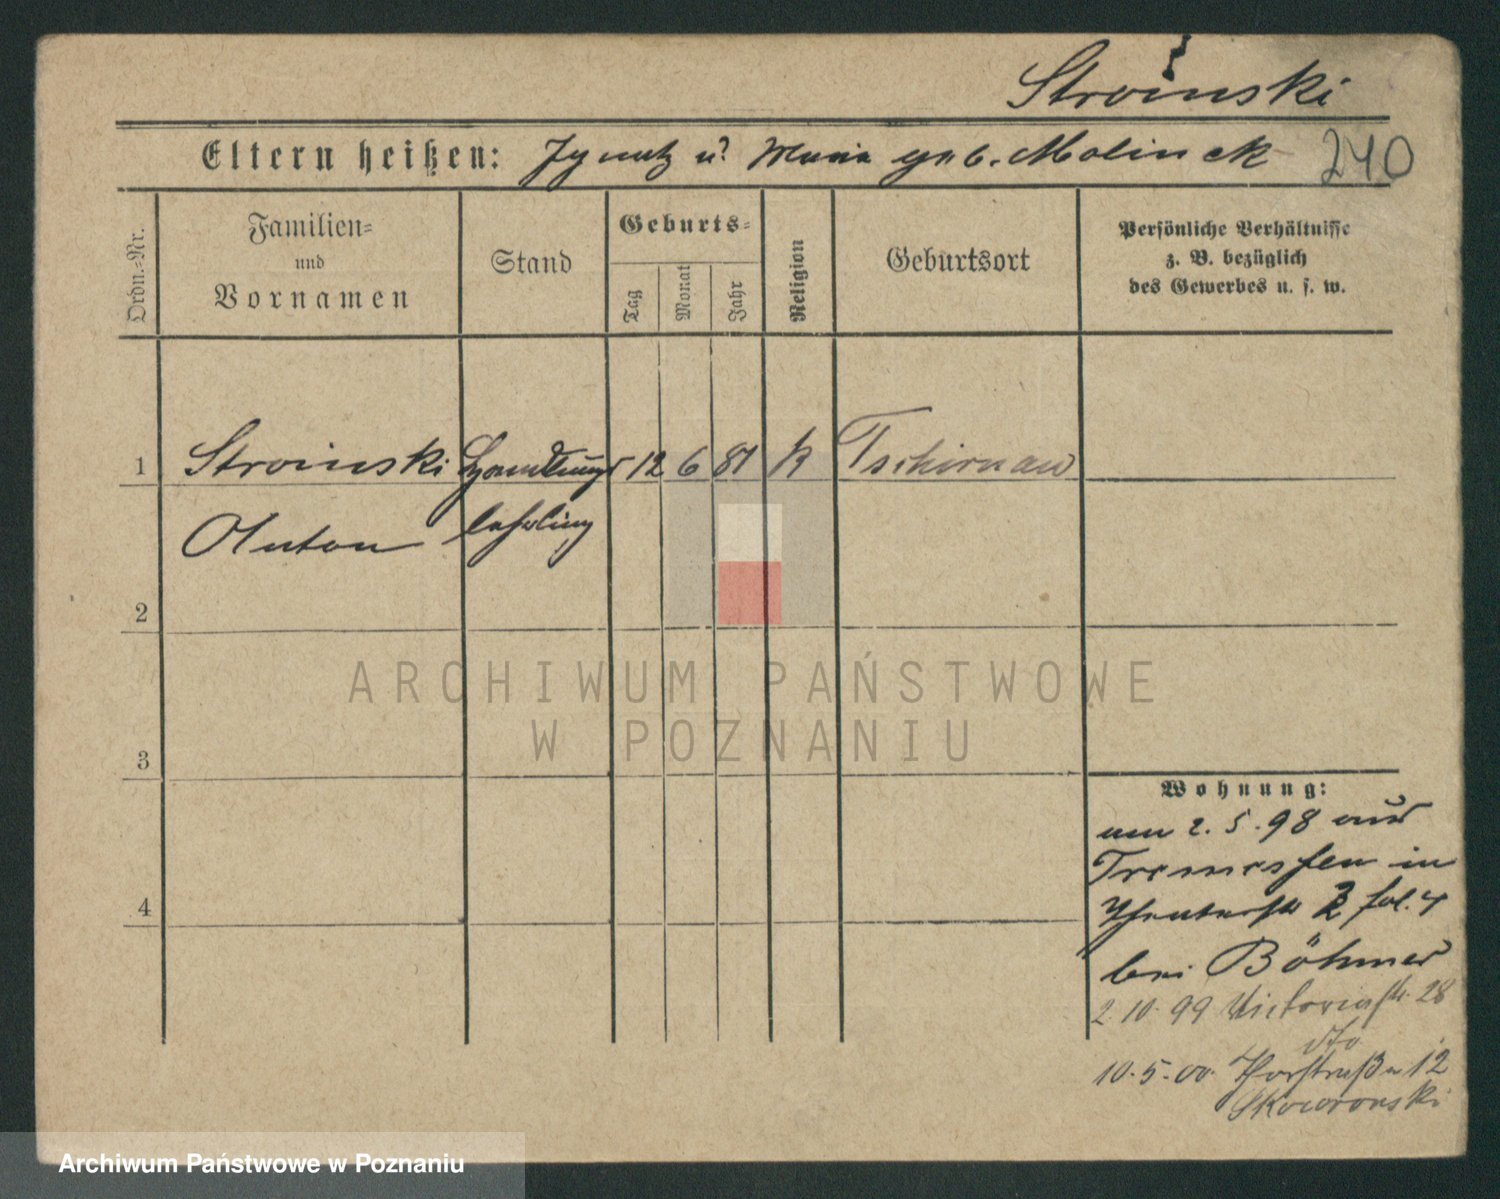 Stroinski
Eltern heißen: Ignatz u. Maria geb. Molinek 240
Ordn.-Nr.
Familien-
und
Vornamen
Stand
Geburts-
Tag
Monat
Jahr
Religion
Geburtsort
Persönliche Verhältnisse
z. B. bezüglich
des Gewerbes u. s. w.
1 Stroinski Handlungs 12 6 81 k Tschirnau
Anton lehrling
2
3
4
Wohnung:
am 2. 5. 98 aus
Tremessen in
2 fol. 4
bei Böhmer
2. 10. 99 Victoriastr. 28
dto
10. 5. 00. Thorstraße 12
Skoworonski
ARCHIWUM PAŃSTWOWE
W POZNANIU
Archiwum Państwowe w Poznaniu